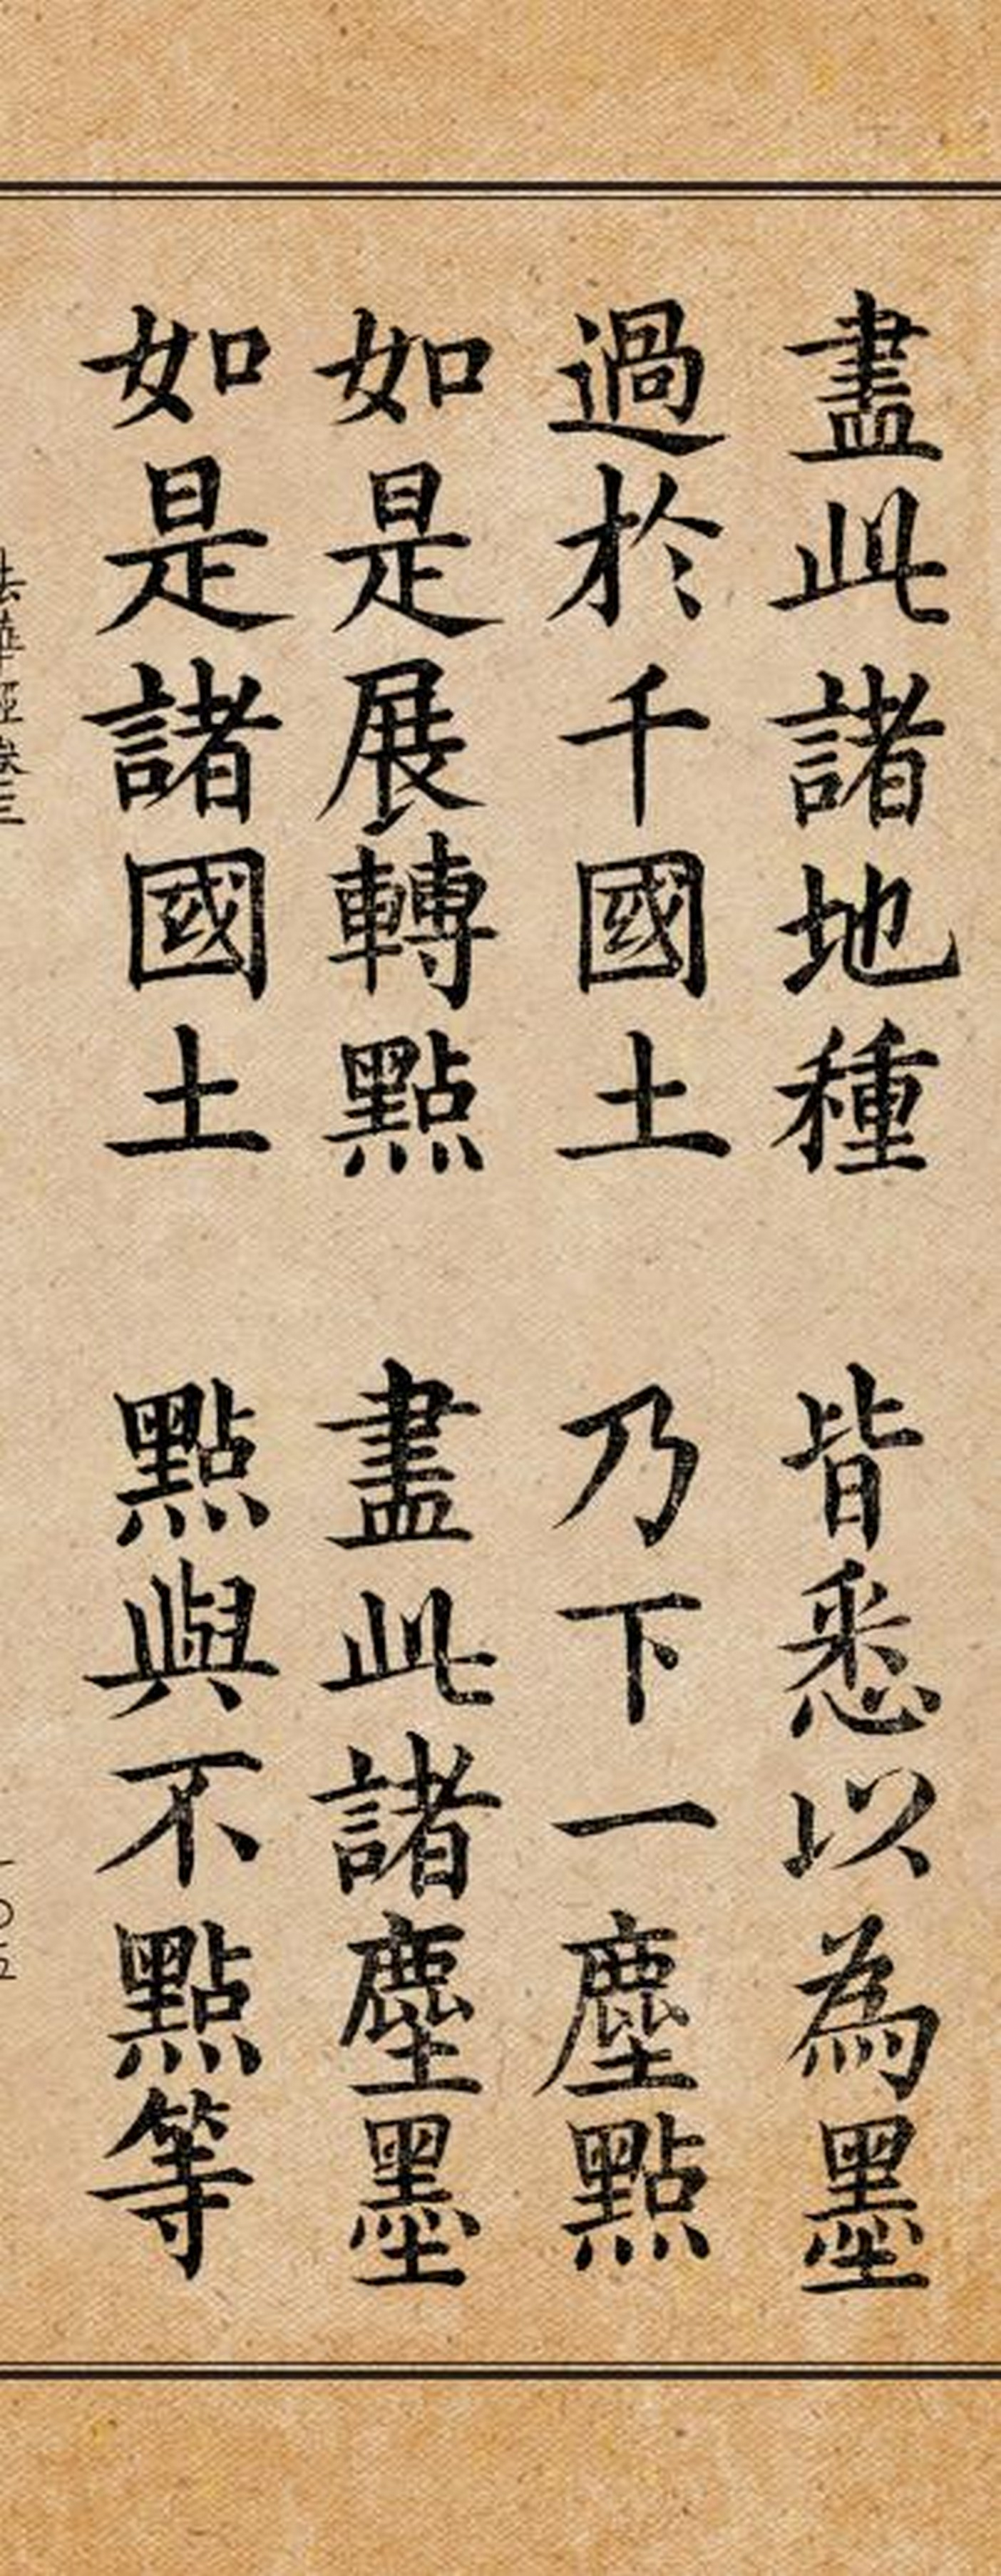 盡此諸地種 皆悉以為墨
過於千國土 乃下一塵點
如是展轉點 盡此諸塵墨
如是諸國土 點與不點等
法華經卷三
一〇五